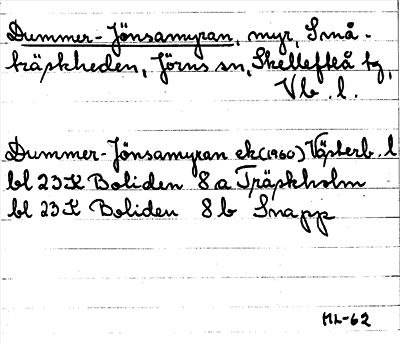 Dummer-Jönsamyran, myr, Små-
träskheden, Jörns sn, Skellefteå tg,
Vb. l.
Dummer-Jönsamyran ek(1960) Västerb. l
bl 23K Boliden 8a Träskholm
bl 23K Boliden 8b Snapp
ML-62